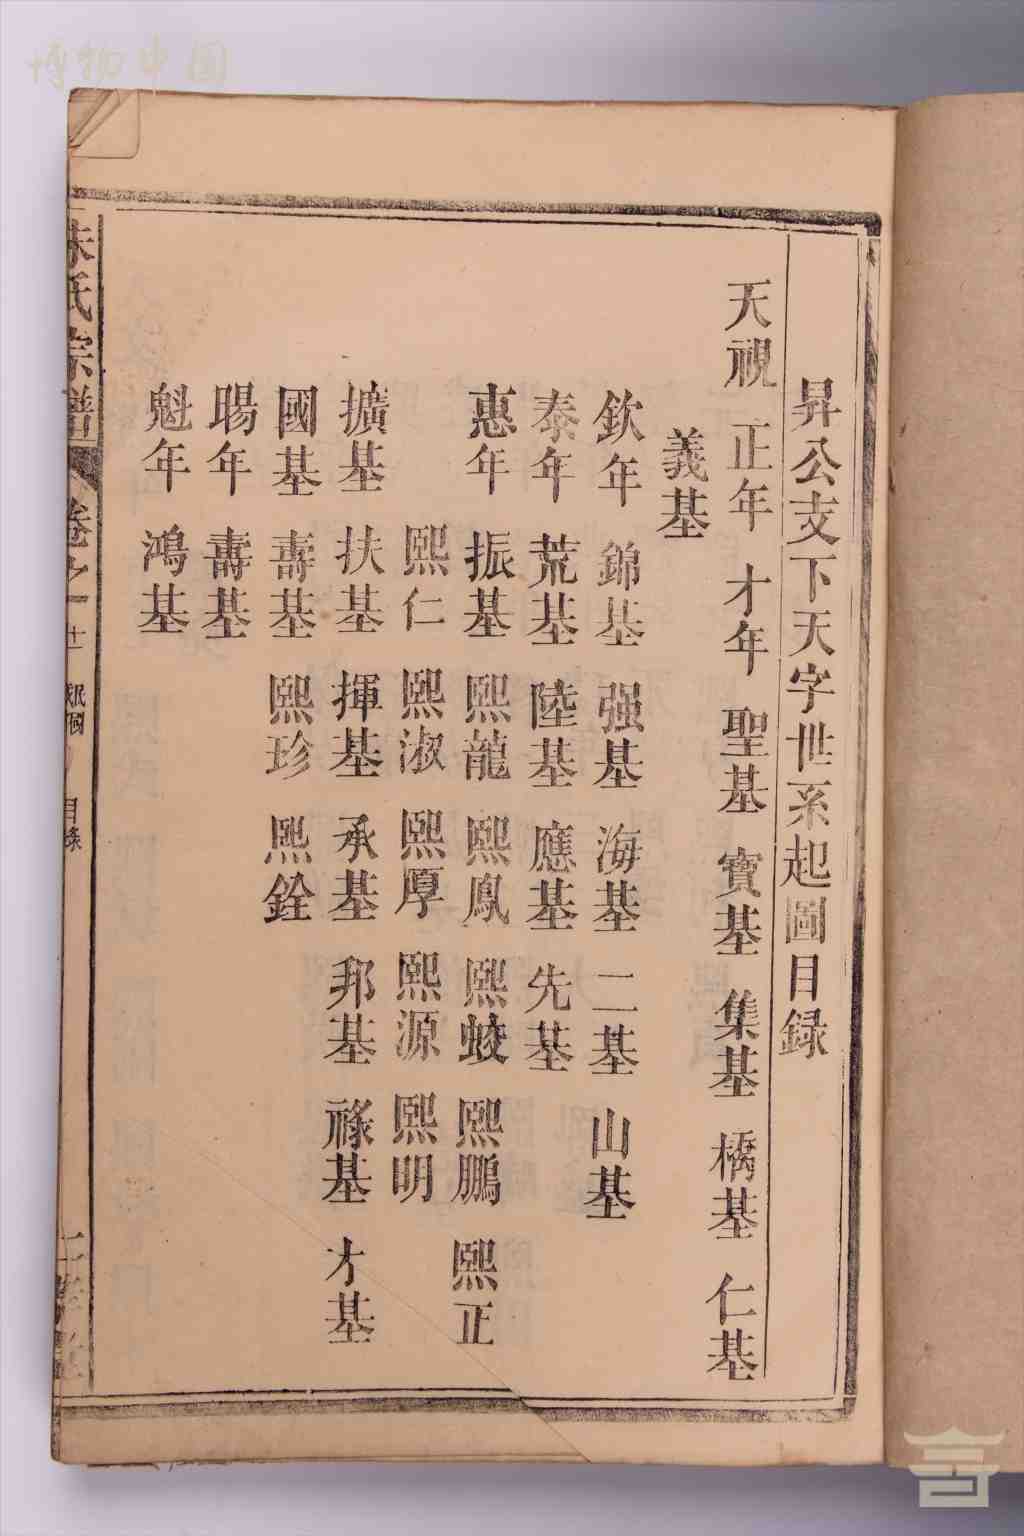 昇公支下天字世系起圖目録
天視 正年 才年 聖基 寶基 集基 橋基 仁基
義基
欽年 錦基 强基 海基 二基 山基
泰年 荒基 陸基 應基 先基
惠年 振基 熙龍 熙鳳 熙蛟 熙鵬 熙正
熙仁 熙淑 熙厚 熙源 熙明
擴基 扶基 揮基 承基 邦基 祿基 才基
國基 壽基 熙珍 熙銓
暘年 壽基
魁年 鴻基
朱氏宗譜 卷之一 目錄
博物中國